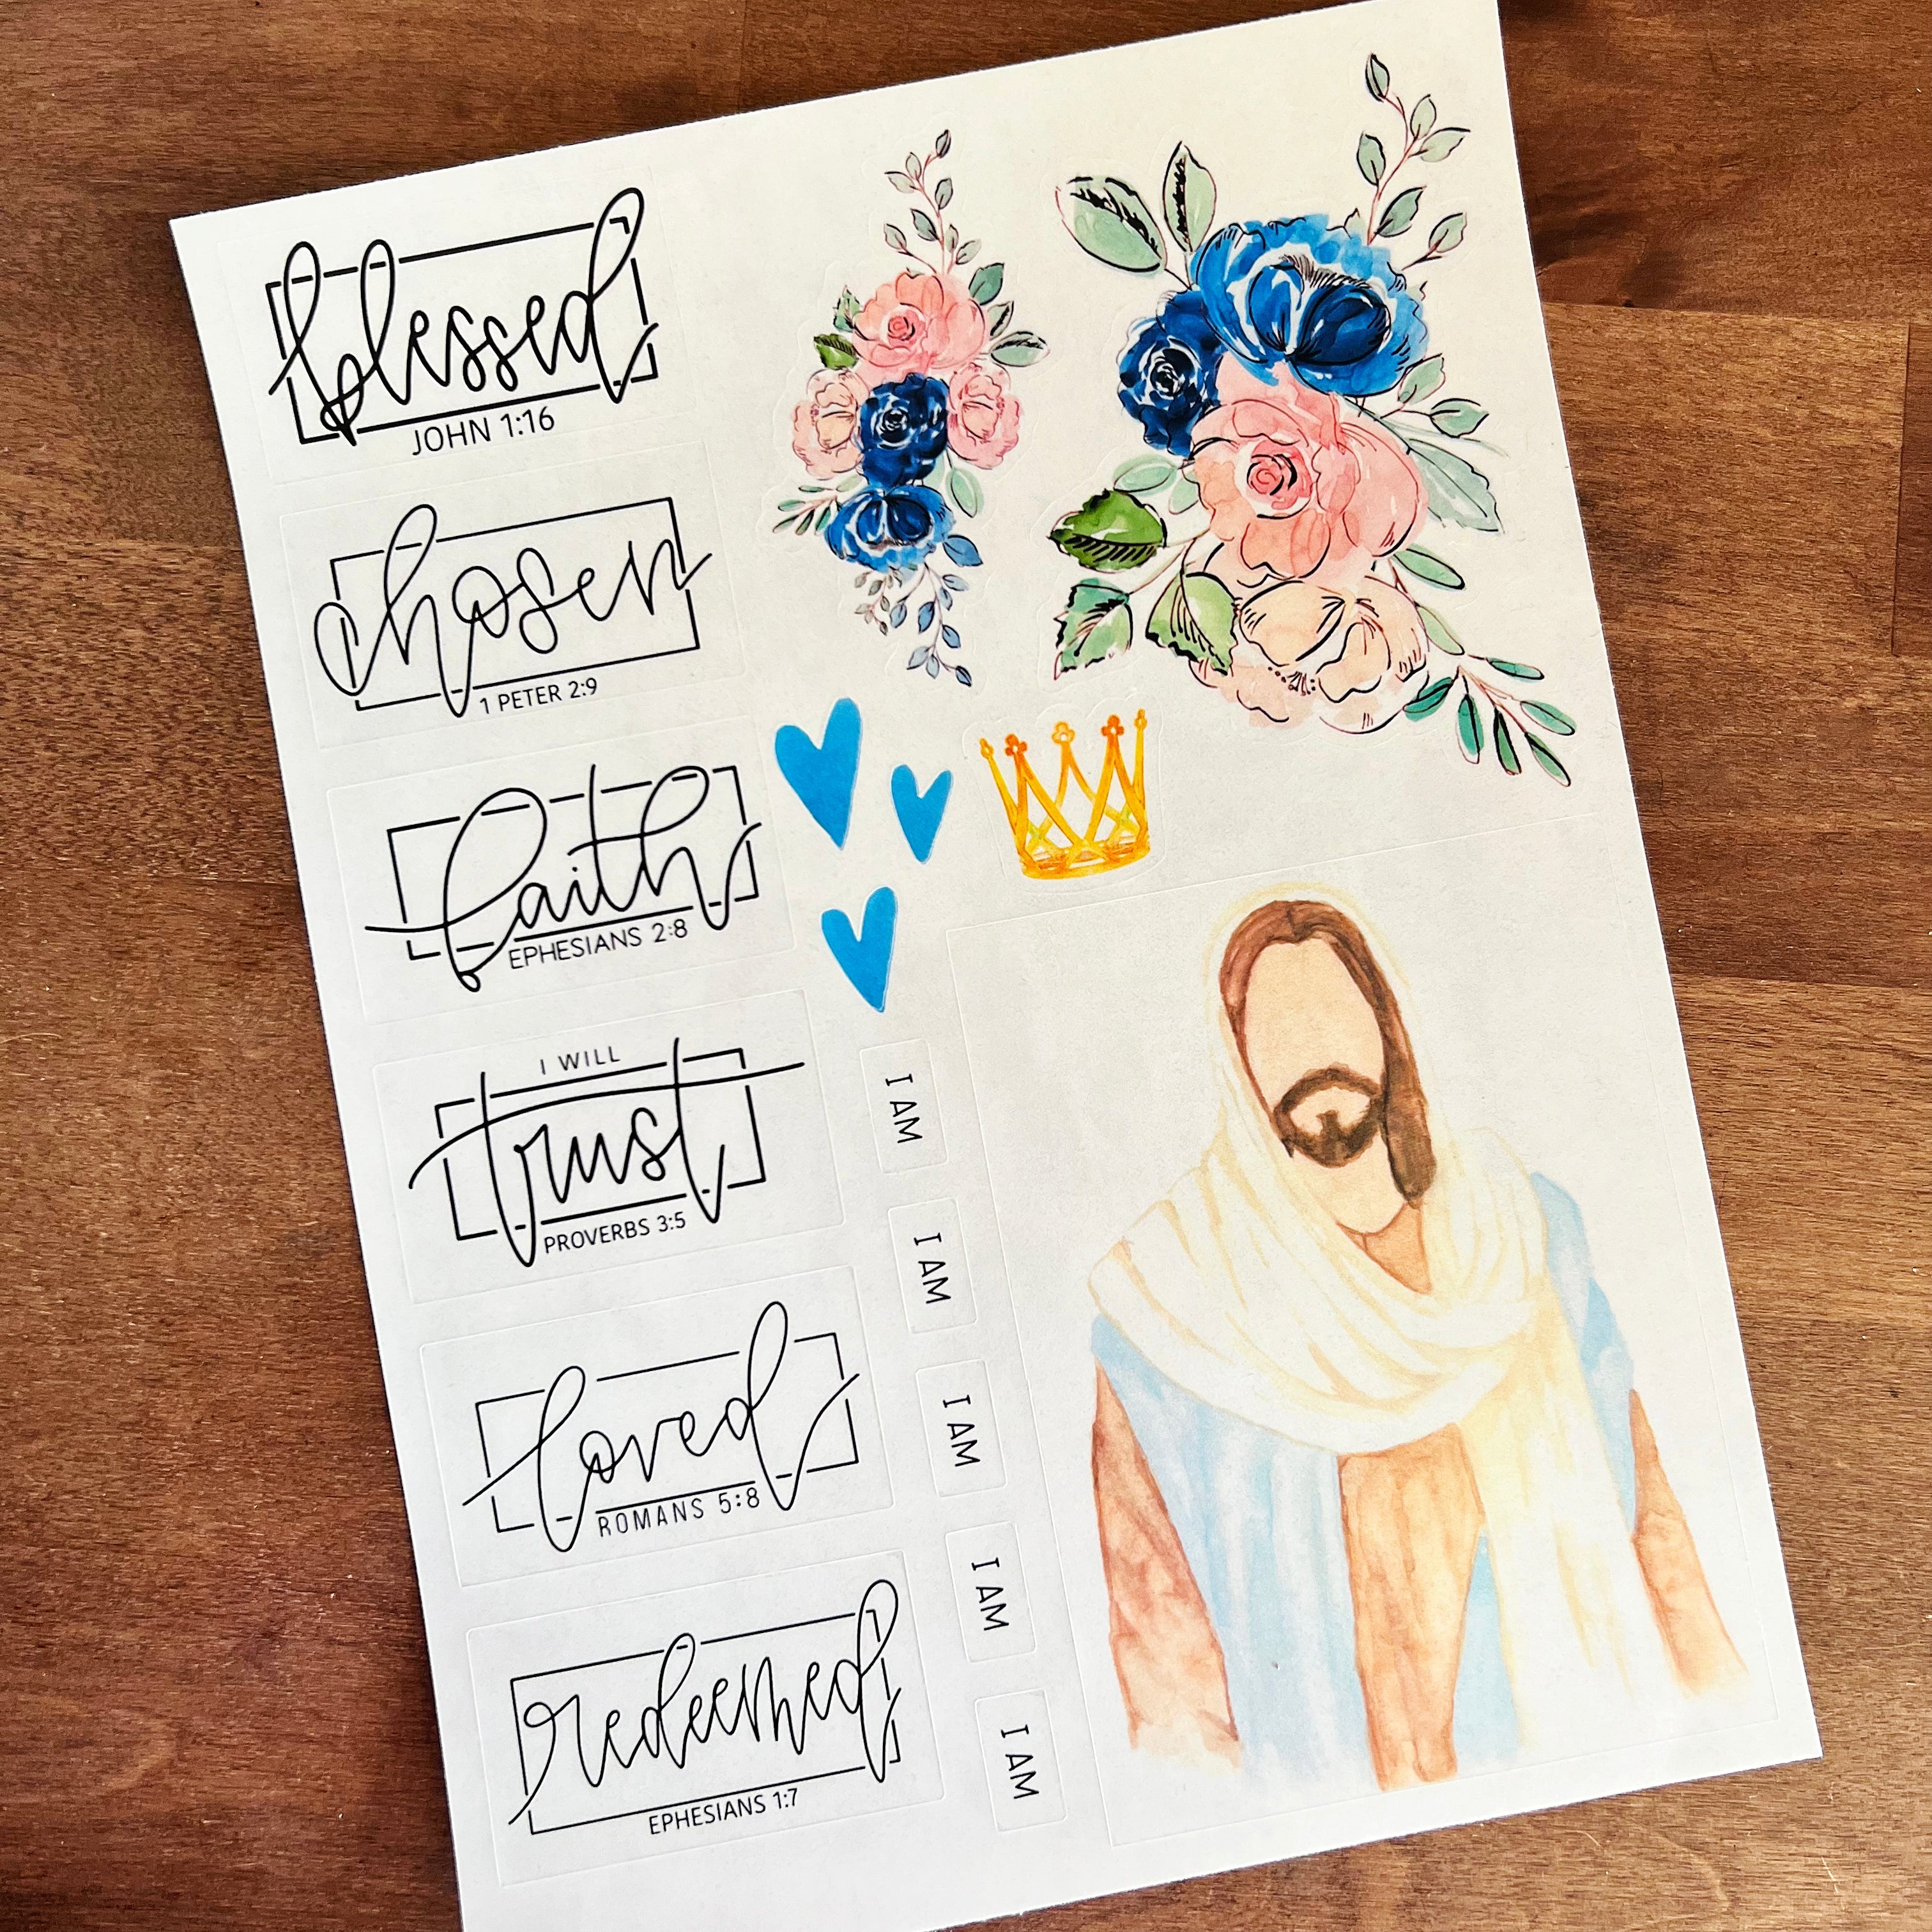 blessed
JOHN 1:16
chosen
1 PETER 2:9
faith
EPHESIANS 2:8
I WILL
trust
PROVERBS 3:5
loved
ROMANS 5:8
redeemed
EPHESIANS 1:7
I AM
I AM
I AM
I AM
I AM